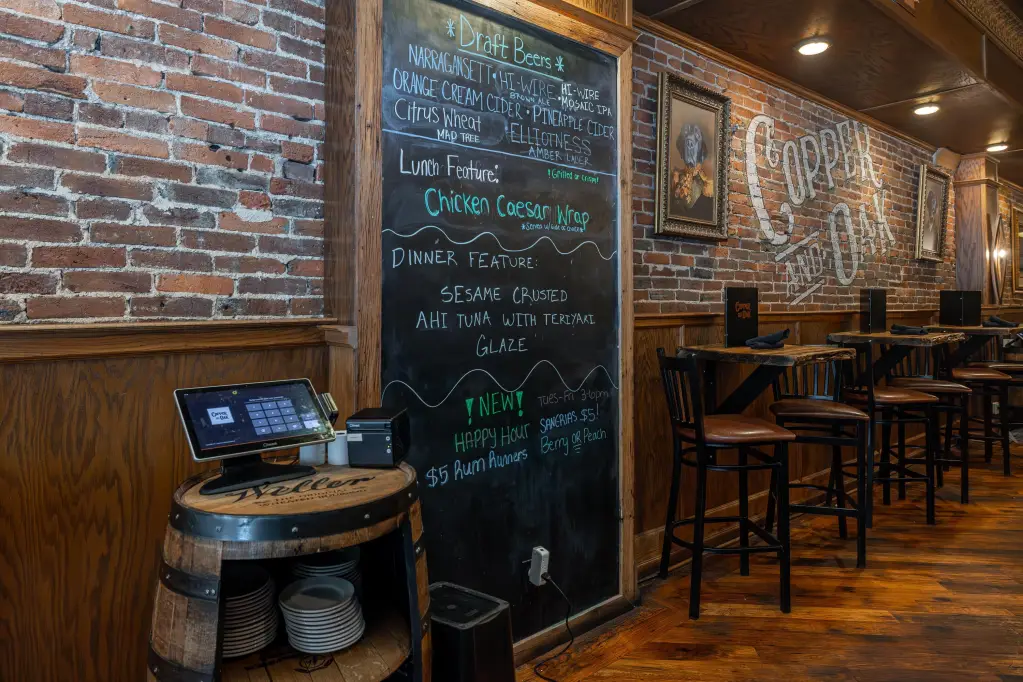 *Draft Beers*
NARRAGANSETT • HI-WIRE • HI-WIRE
BROWN ALE MOSAIC IPA
ORANGE CREAM CIDER • PINEAPPLE CIDER
Citrus Wheat ELLIOTNESS
MAP TREE AMBER LAGER
Lunch Feature: !Grilled or Crispy!
Chicken Caesar Wrap
*Served w/ side
DINNER FEATURE:
SESAME CRUSTED
AHI TUNA WITH TERIYAKI
GLAZE
!NEW! Tues-Fri 3-6pm
HAPPY HOUR SANGRIAS $5!
$5 Rum Runners Berry OR Peach
COPPER
AND OAK
Weller
COPPER
OAK